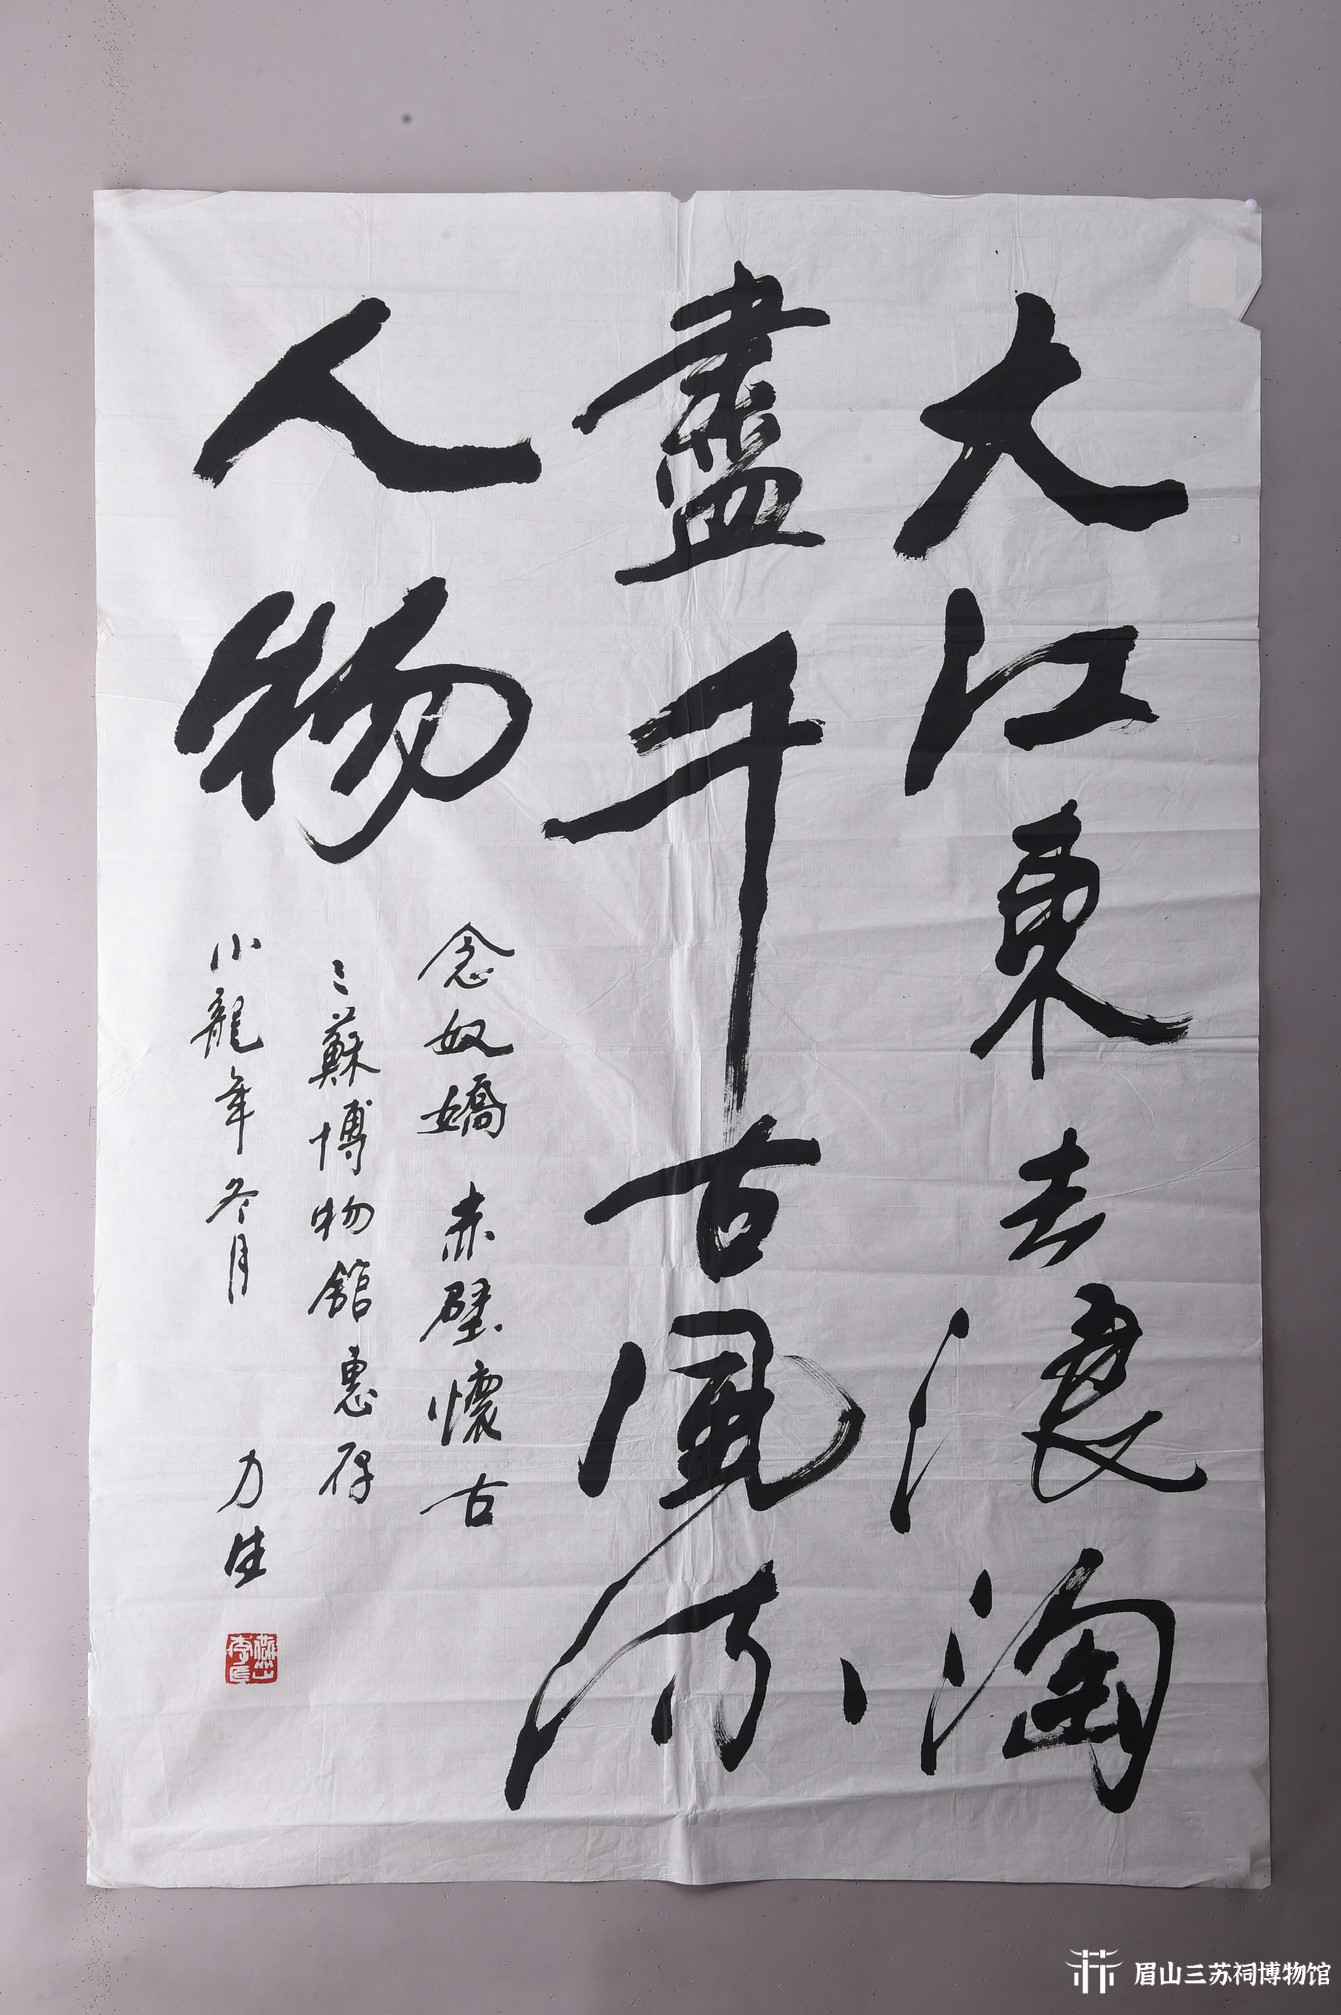 大江東去浪淘
盡千古風流
人物
念奴嬌 赤壁懷古
三蘇博物館惠存
小龍年冬月 力生
眉山三苏祠博物馆